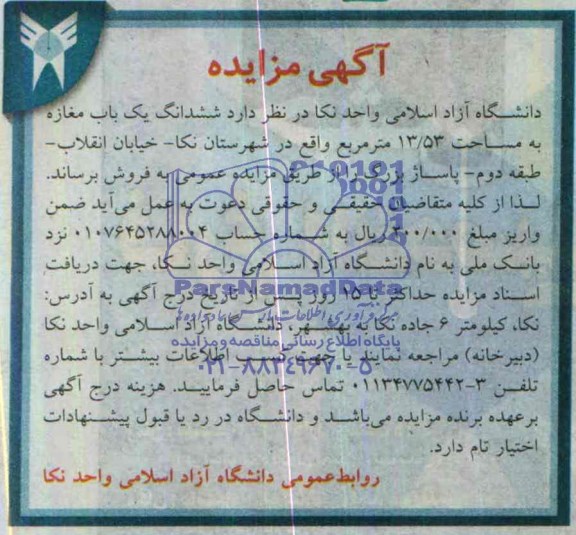 آگهی مزایده
دانشگاه آزاد اسلامی واحد نکا در نظر دارد ششدانگ یک باب مغازه
به مساحت ۱۳/۵۳ مترمربع واقع در شهرستان نکا- خیابان انقلاب-
طبقه دوم- پاساژ بزرگ را از طریق مزایده عمومی به فروش برساند.
لذا از کلیه متقاضیان حقیقی و حقوقی دعوت به عمل می‌آید ضمن
واریز مبلغ ۲۰۰/۰۰۰ ریال به شماره حساب ۰۱۰۷۶۴۵۲۸۸۰۰۴ نزد
بانک ملی به نام دانشگاه آزاد اسلامی واحد نکا، جهت دریافت
اسناد مزایده حداکثر تا ۱۵ روز پس از تاریخ درج آگهی به آدرس:
نکا، کیلومتر ۶ جاده نکا به بهشهر، دانشگاه آزاد اسلامی واحد نکا
(دبیرخانه) مراجعه نمایند یا جهت کسب اطلاعات بیشتر با شماره
تلفن ۳-۰۱۱۳۴۷۷۵۴۴۲ تماس حاصل فرمایید. هزینه درج آگهی
برعهده برنده مزایده می‌باشد و دانشگاه در رد یا قبول پیشنهادات
اختیار تام دارد.
روابط‌عمومی دانشگاه آزاد اسلامی واحد نکا
ParsNamadData
پایگاه اطلاع رسانی مناقصه و مزایده
۰۲۱-۸۸۳۴۹۶۷۰-۵